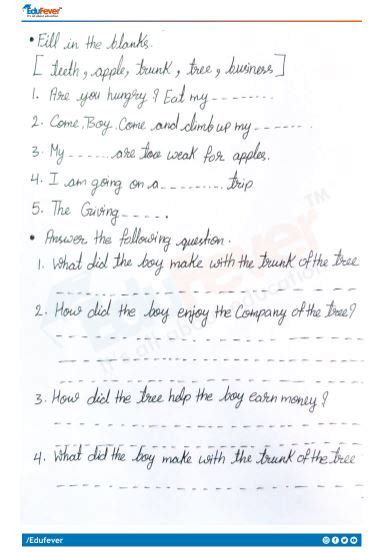 EduFever
It's all about education
• Fill in the blanks.
[ teeth, apple, trunk, tree, business ]
1. Are you hungry? Eat my ---------
2. Come, Boy. Come and climb up my -------
3. My ------- are too weak for apples.
4. I am going on a ---------- trip
5. The Giving -----.
• Answer the following question.
1. What did the boy make with the trunk of the tree
2. How did the boy enjoy the Company of the tree?
3. How did the tree help the boy earn money?
4. What did the boy make with the trunk of the tree
Edufever
TM
It's all about education
/Edufever